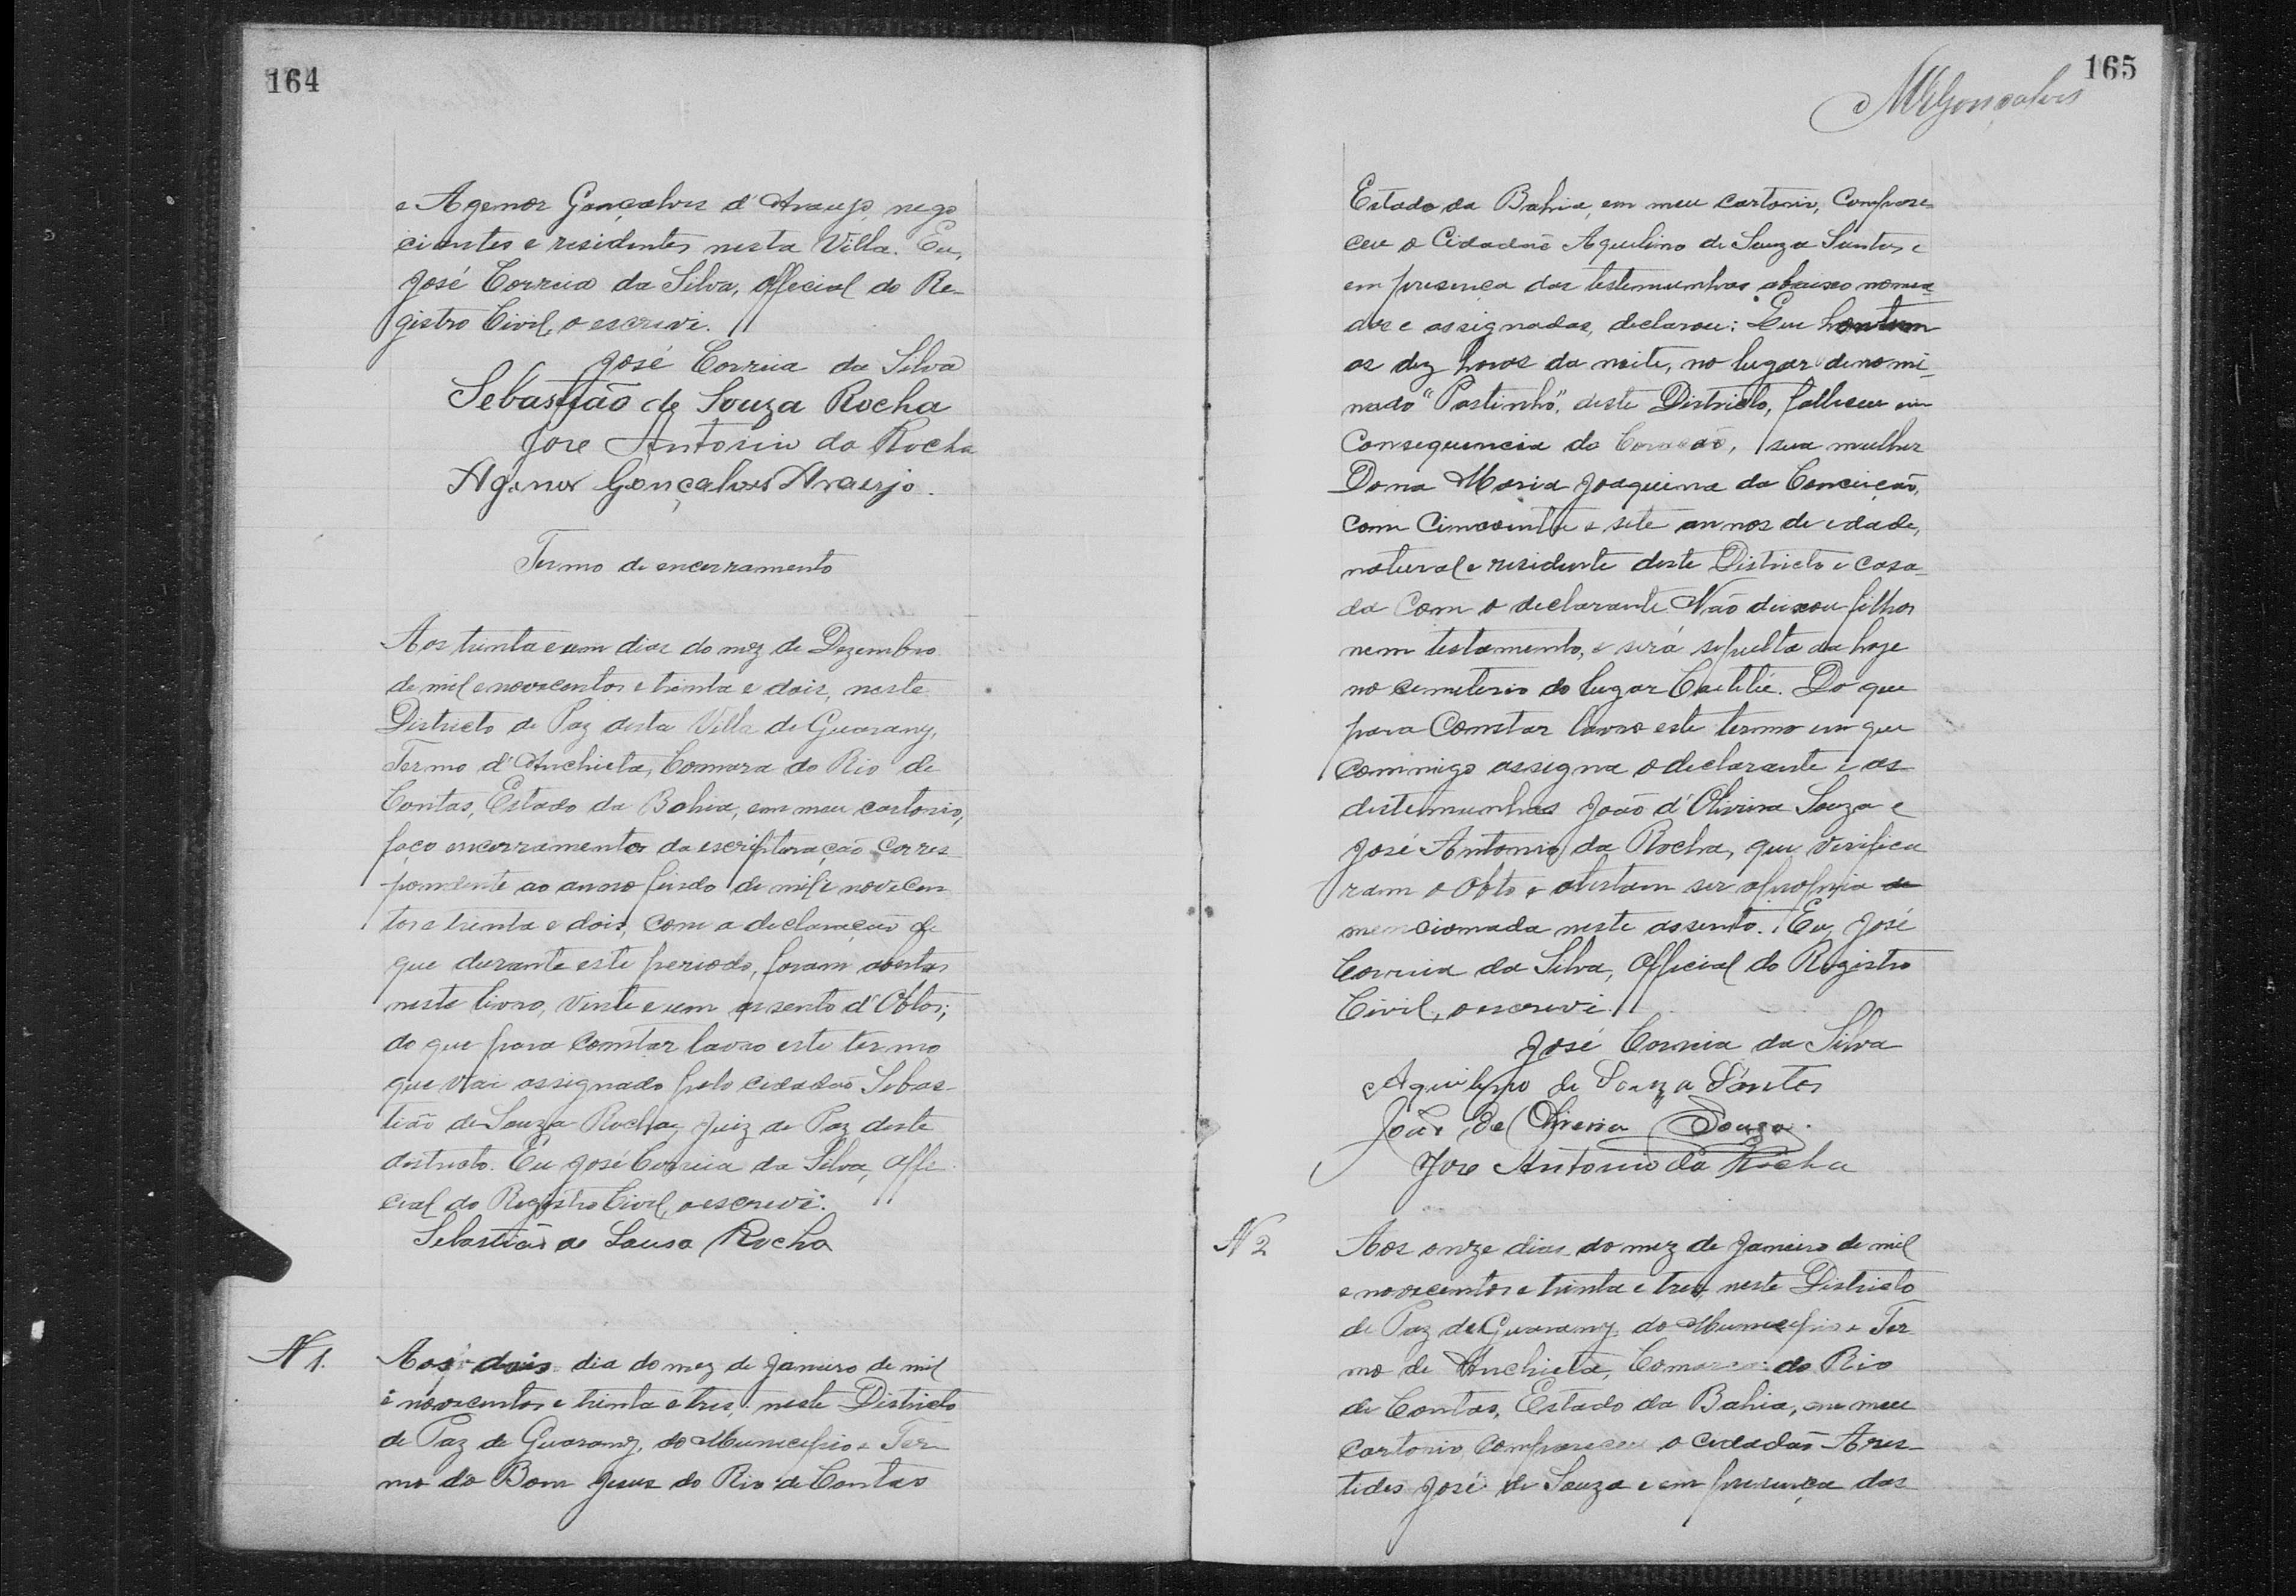 164
e Agenor Gonçalves d'Araujo, nego
ciantes e residentes nesta Villa. Eu,
José Correia da Silva, Official do Re-
gistro Civil, o escrevi.
José Correia da Silva
Sebastião de Souza Rocha
Jose Antonio da Rocha
Agenor Gonçalves Araujo.
Termo de encerramento
Aos trinta e um dias do mez de Dezembro
de mil e novecentos e trinta e dois, neste
Districto de Paz desta Villa de Guarany,
Termo d'Anchieta, Comarca do Rio de
Contas, Estado da Bahia, em meu cartorio,
faço encerramento da escripturação corres-
pondente ao anno findo de mil e novecen
tos e trinta e dois, com a declaração de
que durante este periodo, foram abertos
neste livro, vinte e um assento d'Obtos;
do que para constar lavro este termo
que vai assignado pelo cidadão Sebas-
tião de Souza Rocha, Juiz de Paz deste
districto. Eu José Correia da Silva, Offi-
cial do Registro Civil, o escrevi.
Sebastião de Sousa Rocha
N 1.
Aos dois dia do mez de Janeiro de mil
e novecentos e trinta e tres, neste Districto
de Paz de Guarany, do Municipio e Ter-
mo do Bom Jesus do Rio de Contas
165
MGonçalves
Estado da Bahia, em meu cartorio, Compare-
ceu o Cidadão Aquilino de Souza Santos e
em presença das testemunhas abaixo nomea-
das e assignadas, declarou: Que hontem
as dez horas da noite, no lugar denomi-
nado "Pastinho", deste Districto, falleceu em
Consequencia do Coração, sua mulher
Dona Maria Joaquina da Conceição,
com cincoenta e sete annos de edade,
natural e residente deste Districto e casa-
da com o declarante. Não deixou filhos
nem testamento, e será sepultada hoje
no cemiterio do lugar Caetité. Do que
para Constar lavro este termo em que
commigo assigna o declarante e as
testemunhas João d'Oliveira Souza e
José Antonio da Rocha, que verifica
ram o Obto e atestam ser a propria de
mencionada neste assento. Eu, José
Correia da Silva, Official do Registro
Civil, o escrevi.
José Correia da Silva
Aquilino de Souza Santos
João de Oliveira Souza.
Jose Antonio da Rocha
N 2
Aos onze dias do mez de Janeiro de mil
e novecentos e trinta e tres, neste Districto
de Paz de Guarany, do Municipio e Ter
mo de Anchieta, Comarca do Rio
de Contas, Estado da Bahia, em meu
cartorio, compareceu o cidadão Aris-
tides José de Souza e em presença das